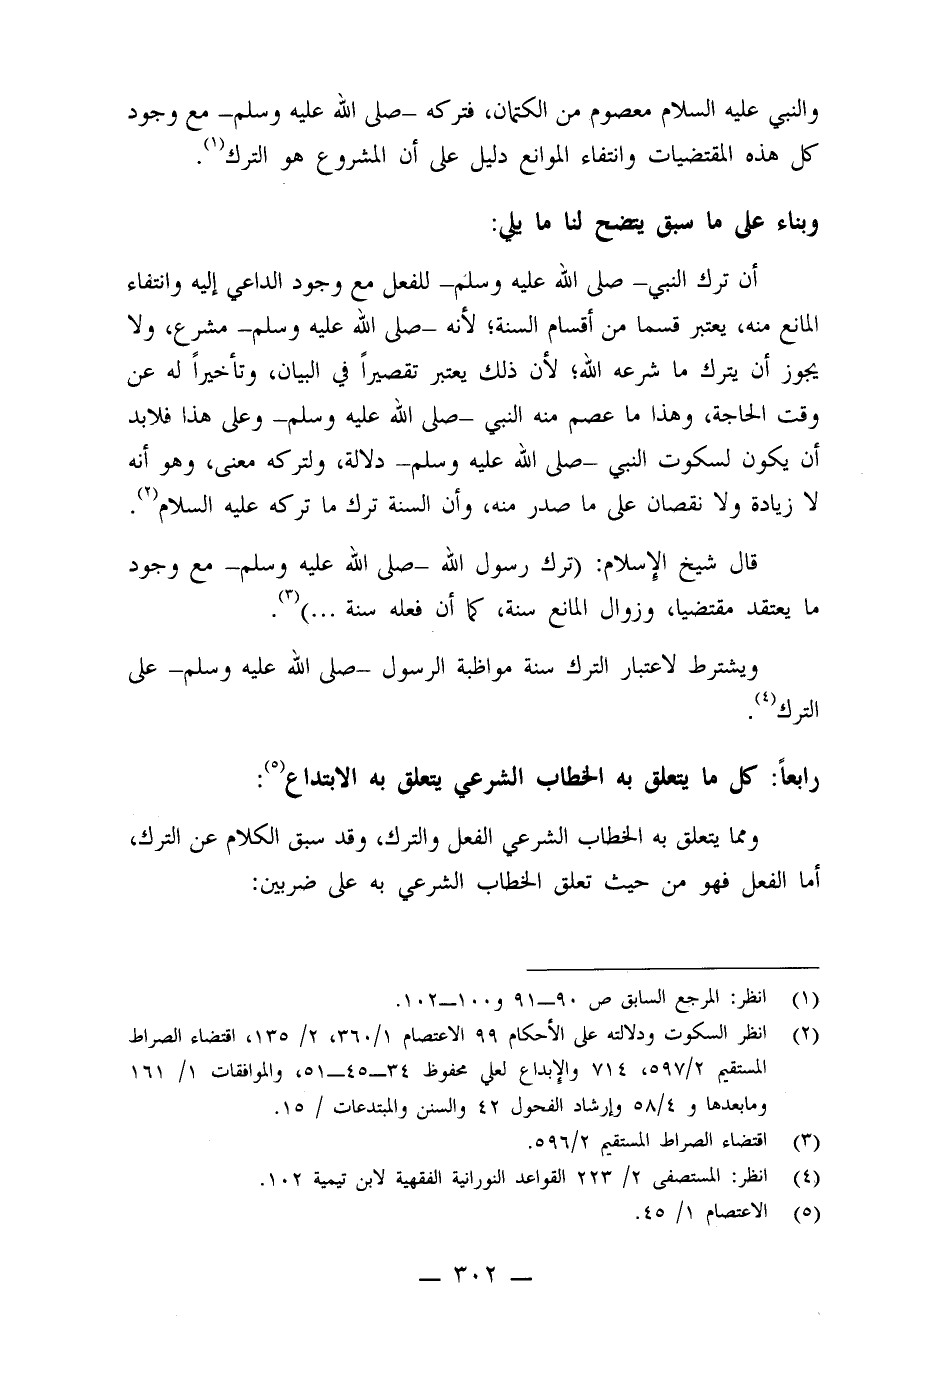 والنبي عليه السلام معصوم من الكتمان، فتركه –صلى الله عليه وسلم– مع وجود
كل هذه المقتضيات وانتفاء الموانع دليل على أن المشروع هو الترك(١).
وبناء على ما سبق يتضح لنا ما يلي:
أن ترك النبي– صلى الله عليه وسلم– للفعل مع وجود الداعي إليه وانتفاء
المانع منه، يعتبر قسما من أقسام السنة؛ لأنه –صلى الله عليه وسلم– مشرع، ولا
يجوز أن يترك ما شرعه الله؛ لأن ذلك يعتبر تقصيراً في البيان، وتأخيراً له عن
وقت الحاجة، وهذا ما عصم منه النبي –صلى الله عليه وسلم– وعلى هذا فلابد
أن يكون لسكوت النبي –صلى الله عليه وسلم– دلالة، ولتركه معنى، وهو أنه
لا زيادة ولا نقصان على ما صدر منه، وأن السنة ترك ما تركه عليه السلام(٢).
قال شيخ الإسلام: (ترك رسول الله –صلى الله عليه وسلم– مع وجود
ما يعتقد مقتضيا، وزوال المانع سنة، كما أن فعله سنة ...)(٣).
ويشترط لاعتبار الترك سنة مواظبة الرسول –صلى الله عليه وسلم– على
الترك(٤).
رابعاً: كل ما يتعلق به الخطاب الشرعي يتعلق به الابتداع(٥):
ومما يتعلق به الخطاب الشرعي الفعل والترك، وقد سبق الكلام عن الترك،
أما الفعل فهو من حيث تعلق الخطاب الشرعي به على ضربين:
(١) انظر: المرجع السابق ص ٩٠–٩١ و١٠٠–١٠٢.
(٢) انظر السكوت ودلالته على الأحكام ٩٩ الاعتصام ٣٦٠/١، ٢/ ١٣٥، اقتضاء الصراط
المستقيم ٥٩٧/٢، ٧١٤ والإبداع لعلي محفوظ ٣٤–٤٥–٥١، والموافقات ١/ ١٦١
ومابعدها و ٥٨/٤ وإرشاد الفحول ٤٢ والسنن والمبتدعات / ١٥.
(٣) اقتضاء الصراط المستقيم ٥٩٦/٢.
(٤) انظر: المستصفى ٢/ ٢٢٣ القواعد النورانية الفقهية لابن تيمية ١٠٢.
(٥) الاعتصام ١/ ٤٥.
– ٣٠٢ –